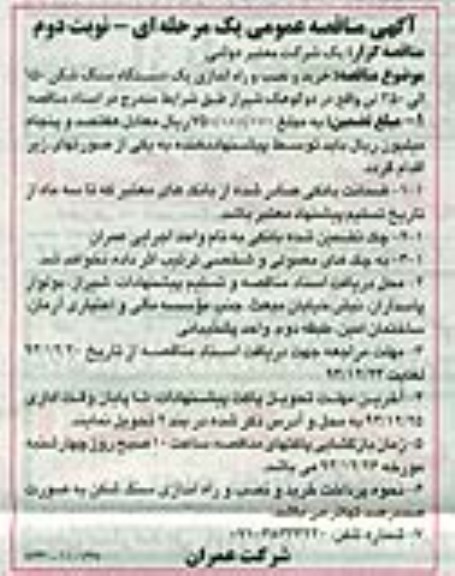 آگهی مناقصه عمومی یک مرحله ای - نوبت دوم
مناقصه گزار: یک شرکت معتبر دولتی
موضوع مناقصه: خرید و نصب و راه اندازی یک دستگاه سنگ شکن ۱۵۰
الی ۲۵۰ تن واقع در دوکوهک شیراز طبق شرایط مندرج در اسناد مناقصه
۱- مبلغ تضمین: به مبلغ ریال معادل هفتصد و پنجاه
میلیون ریال باید توسط پیشنهاددهنده به یکی از صورتهای زیر
اقدام گردد.
۱-۱- ضمانت بانکی صادر شده از بانک های معتبر که تا سه ماه از
تاریخ تسلیم پیشنهاد معتبر باشد.
۲-۱- چک تضمین شده بانکی به نام واحد اجرایی عمران
۳-۱- به چک های معمولی و شخصی ترتیب اثر داده نخواهد شد.
۲- محل دریافت اسناد مناقصه و تسلیم پیشنهادات: شیراز، بولوار
پاسداران، نبش خیابان مبعث، جنب مؤسسه مالی و اعتباری آرمان،
ساختمان امین، طبقه دوم، واحد پشتیبانی
۳- مهلت مراجعه جهت دریافت اسناد مناقصه از تاریخ
لغایت
۴- آخرین مهلت تحویل پاکت پیشنهادات تا پایان وقت اداری
به محل و آدرس ذکر شده در بند ۲ تحویل نمایند.
۵- زمان بازگشایی پاکتهای مناقصه ساعت ۱۰ صبح روز چهارشنبه
مورخه می باشد.
۶- نحوه پرداخت خرید و نصب و راه اندازی سنگ شکن به صورت
تهاتر می باشد.
۷- شماره تلفن:
شرکت عمران